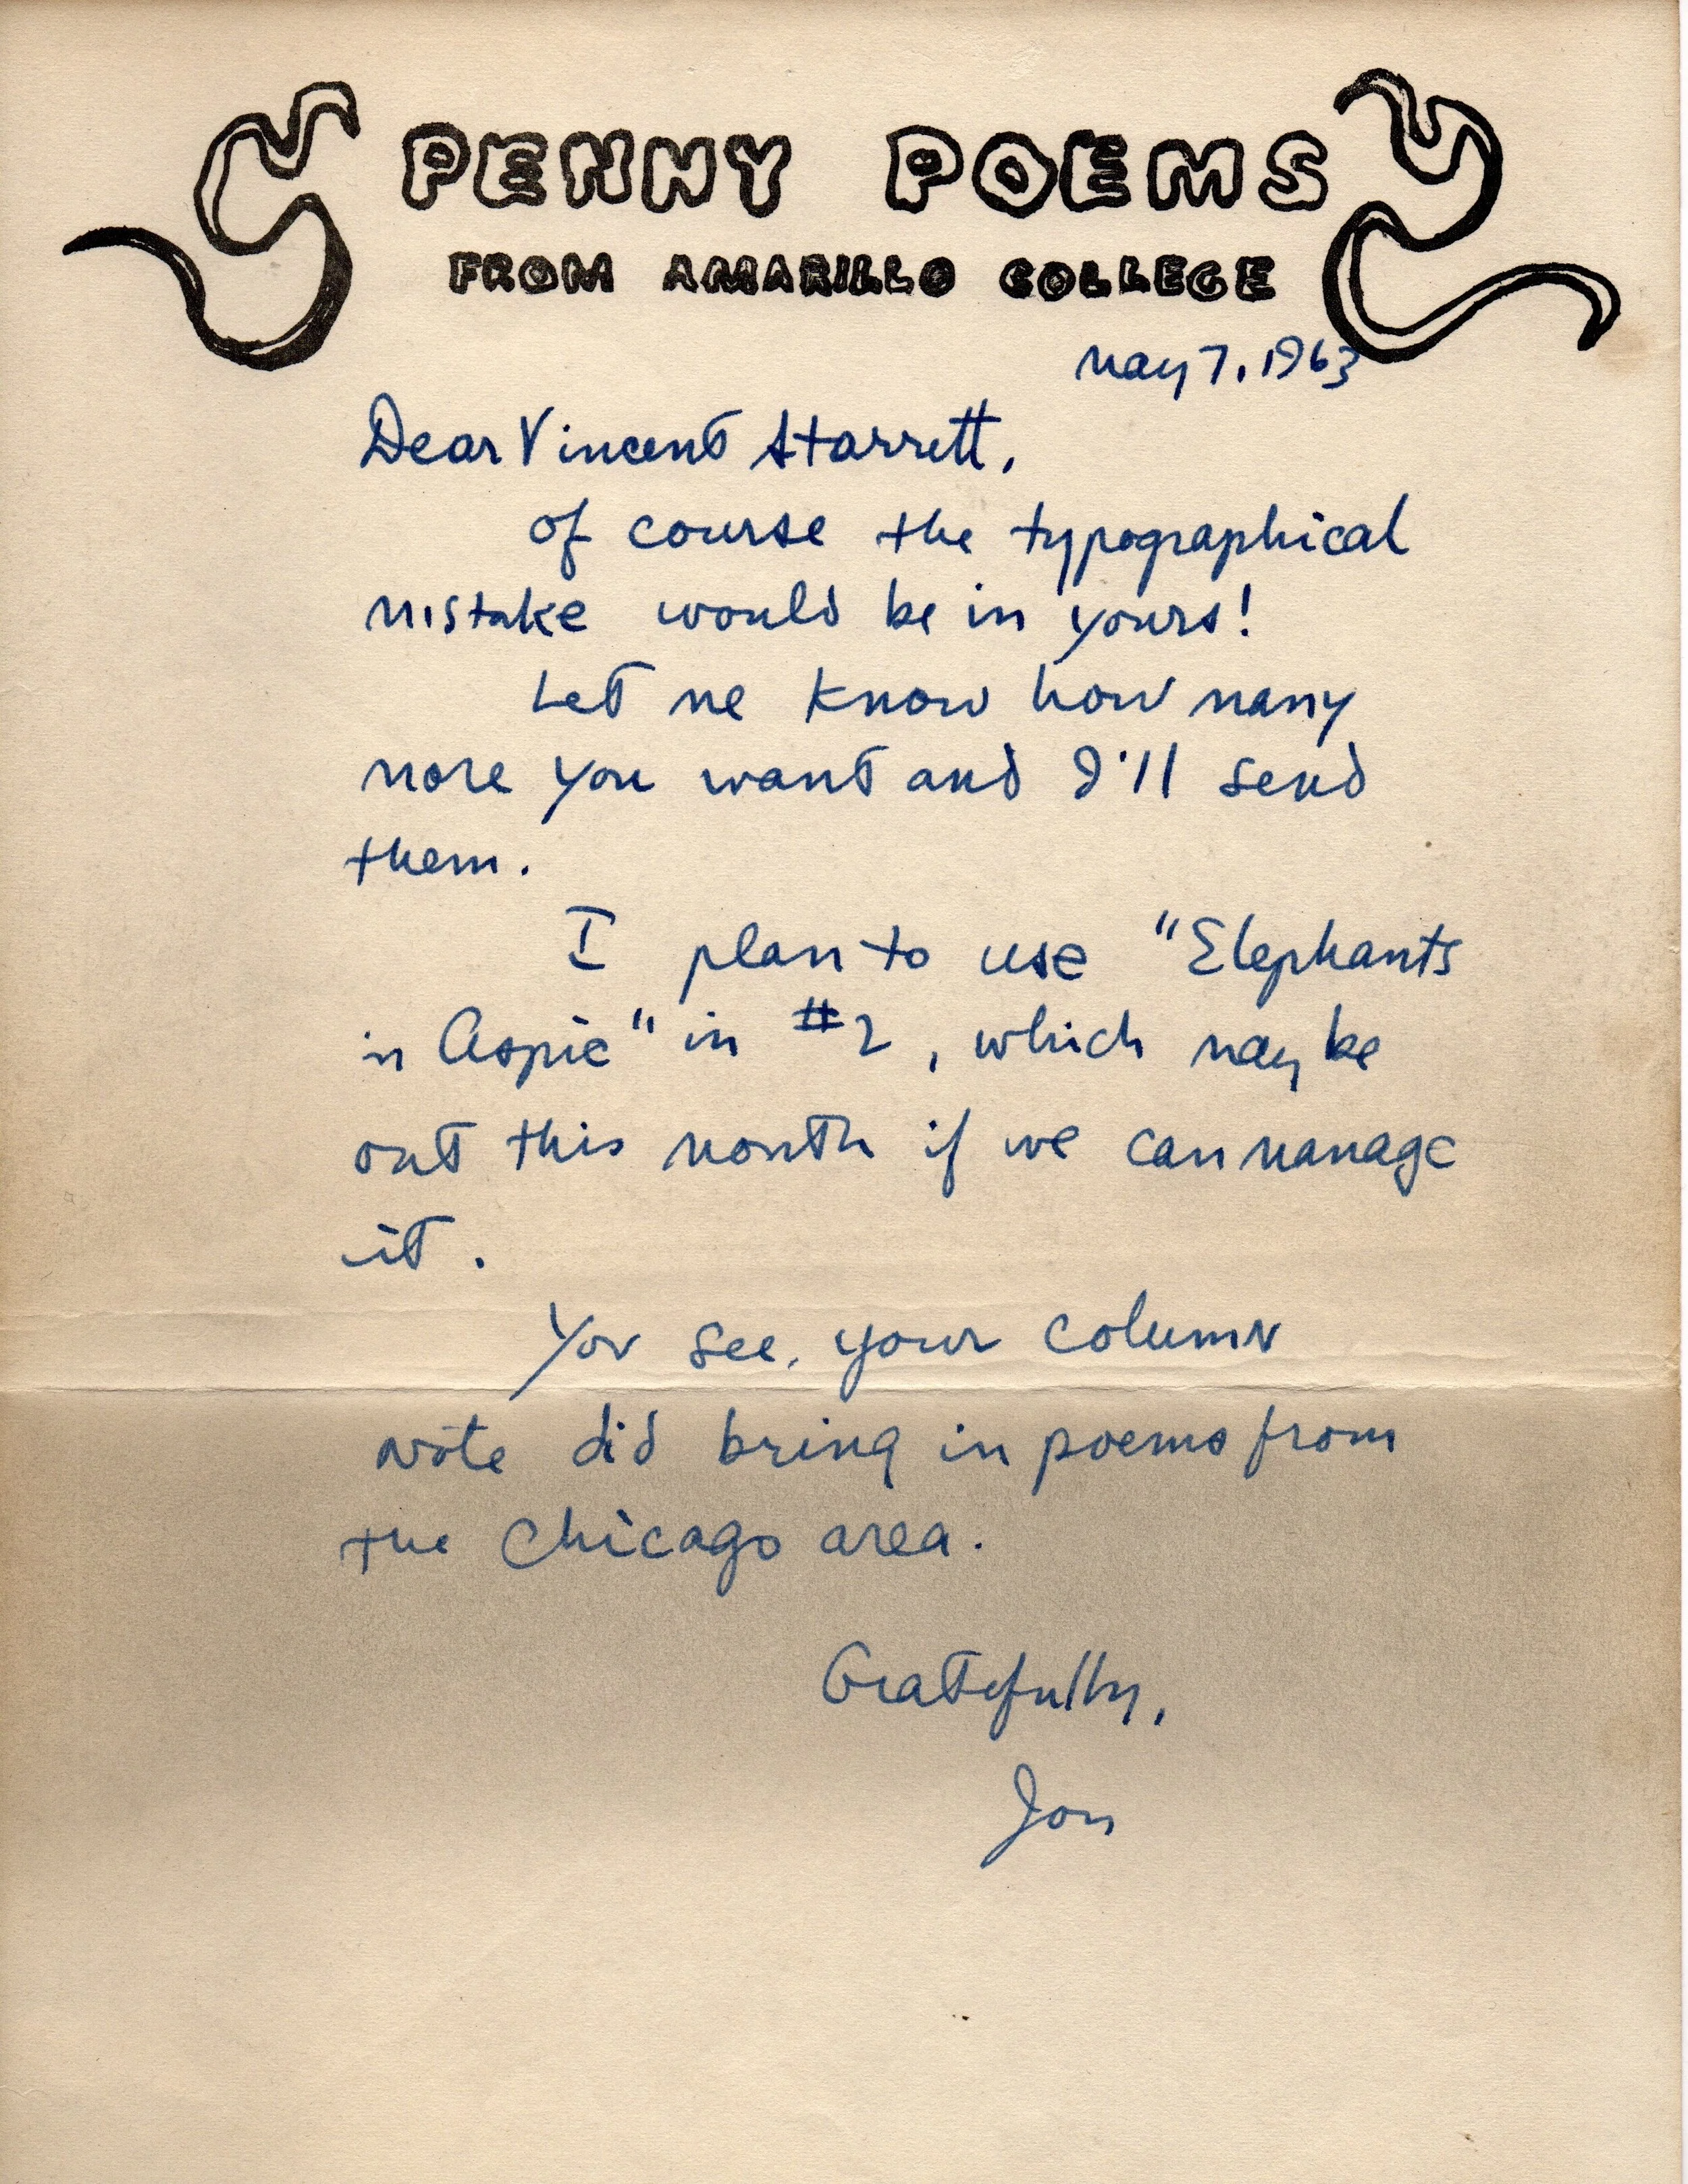 PENNY POEMS
FROM AMARILLO COLLEGE
May 7, 1963
Dear Vincent Starrett,
Of course the typographical
mistake would be in yours!
Let me know how many
more you want and I'll send
them.
I plan to use "Elephants
in Aspic" in #2, which may be
out this month if we can manage
it.
You see, your column
note did bring in poems from
the Chicago area.
Gratefully,
Jon